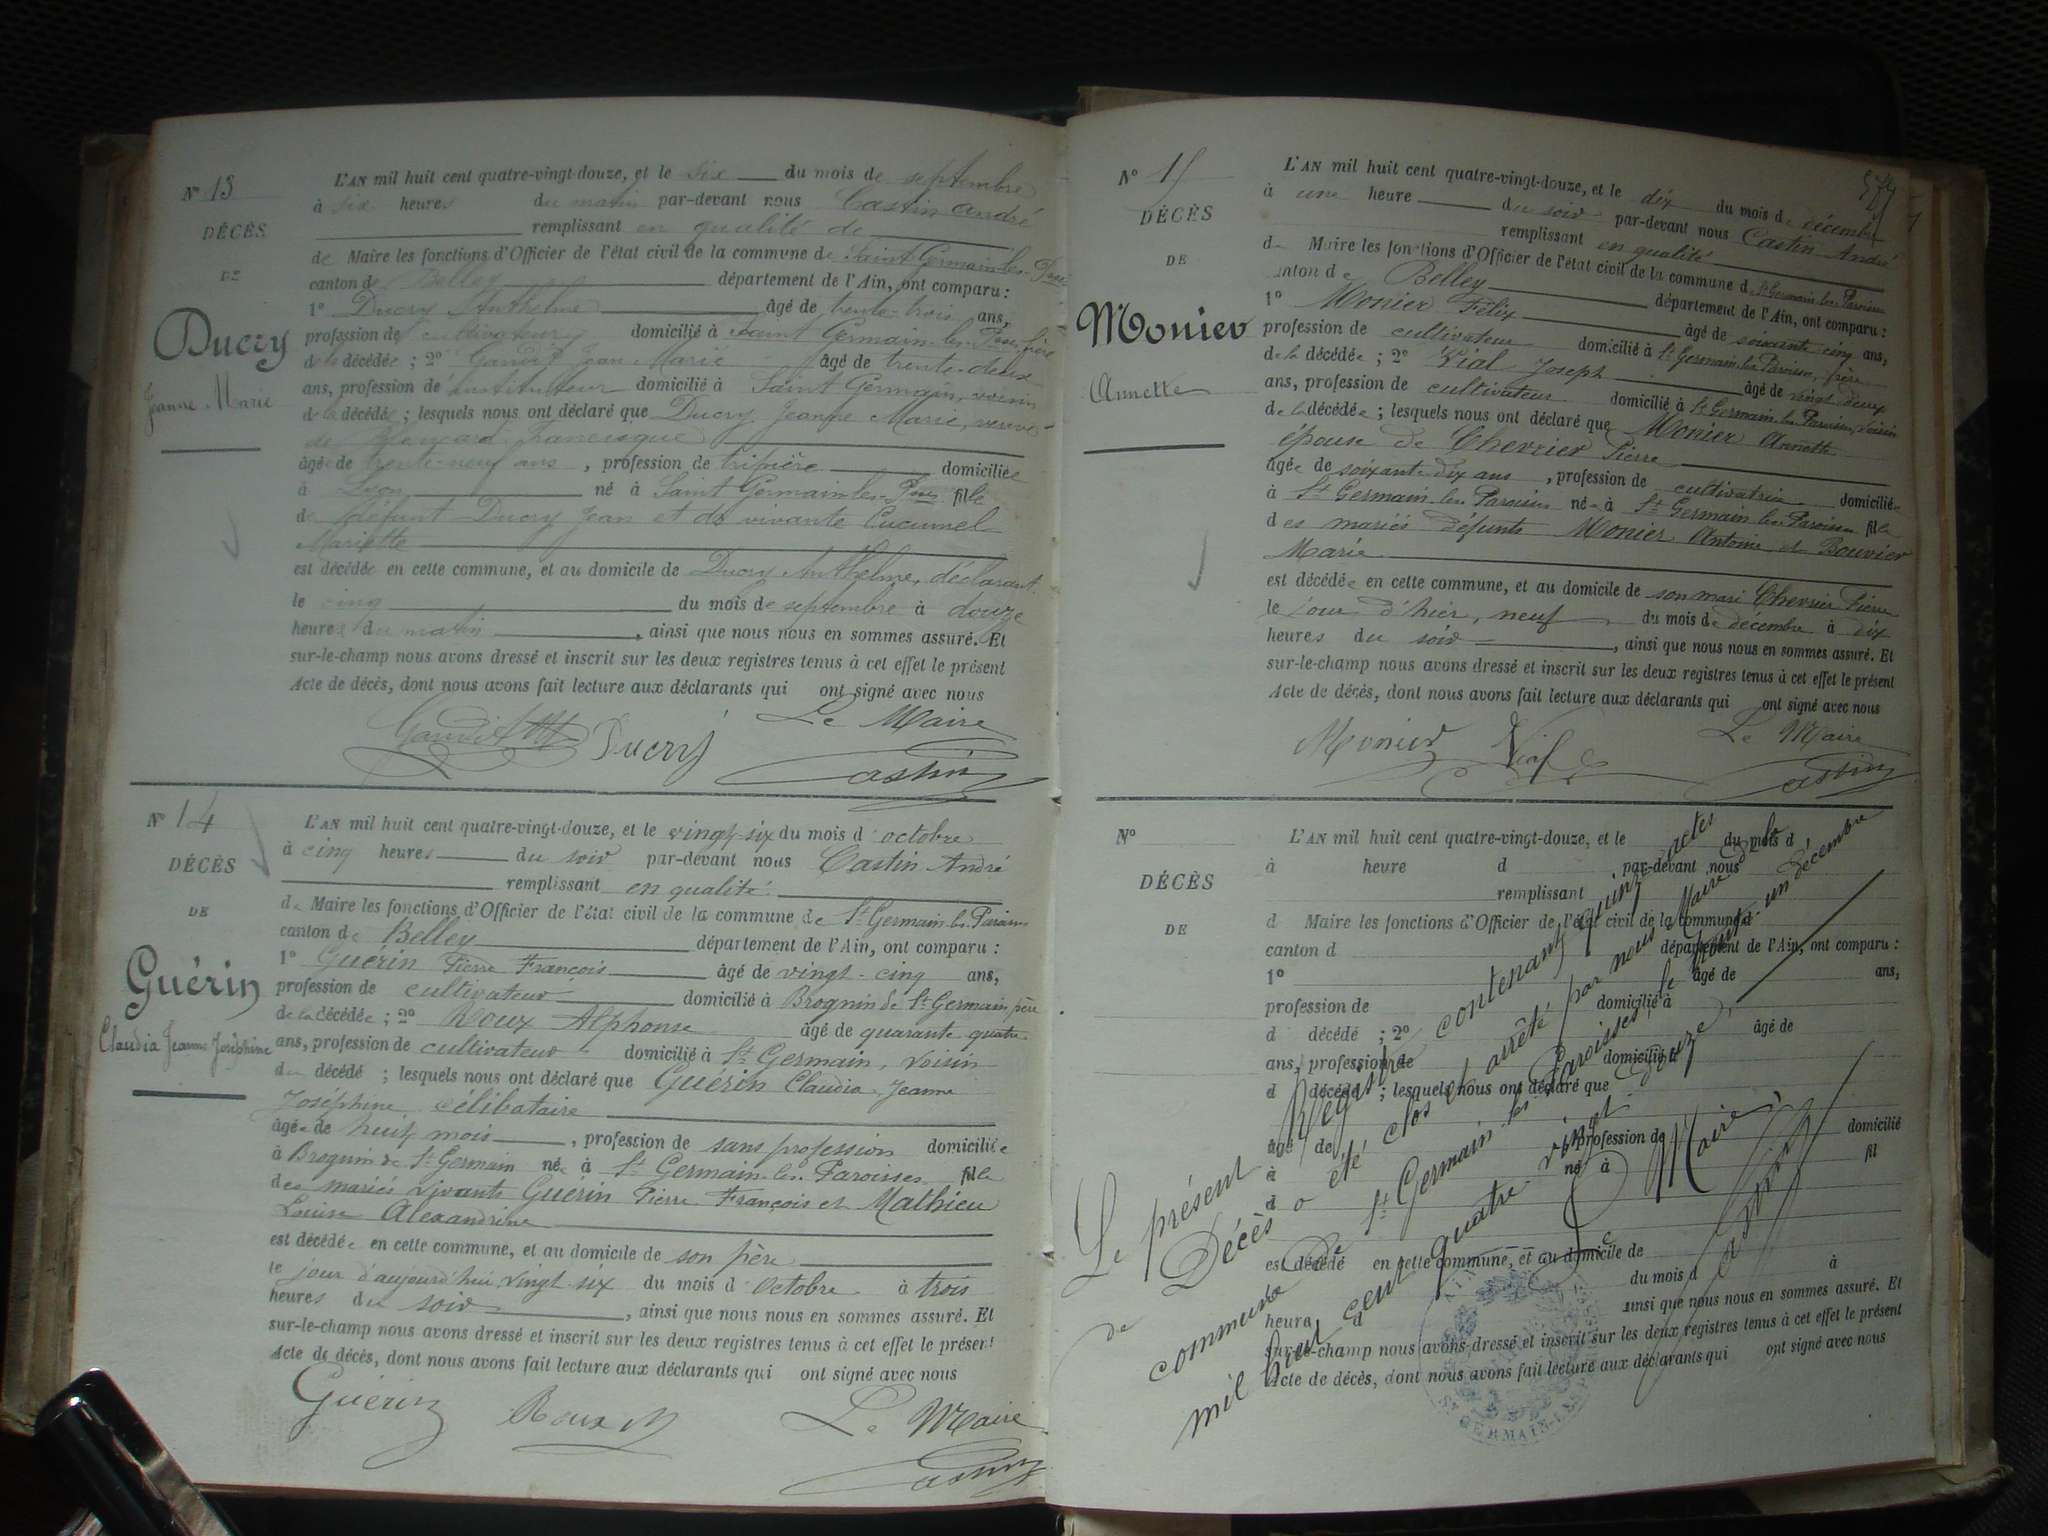 N° 13
DÉCÈS
DE
Ducry
Jeanne Marie
L'AN mil huit cent quatre-vingt-douze, et le six du mois de septembre
à six heures du matin par-devant nous Castin André
remplissant en qualité de
de Maire les fonctions d'Officier de l'état civil de la commune de Saint Germain les Pses
canton de Belley département de l'Ain, ont comparu :
1° Ducry Anthelme âgé de trente-trois ans,
profession de cultivateur domicilié à Saint Germain les Pses, frère
de la décédée ; 2° Gandit Jean Marie âgé de trente-deux
ans, profession d'instituteur domicilié à Saint Germain, voisin
de la décédée ; lesquels nous ont déclaré que Ducry Jeanne Marie, veuve
de Francisque
âgée de trente-neuf ans, profession de tripière domiciliée
à Lyon né à Saint Germain les Pses fille
de défunt Ducry Jean et de vivante Cucumel
Mariette
est décédée en cette commune, et au domicile de Ducry Anthelme, déclarant
le cinq du mois de septembre à douze
heures du matin, ainsi que nous nous en sommes assuré. Et
sur-le-champ nous avons dressé et inscrit sur les deux registres tenus à cet effet le présent
Acte de décès, dont nous avons fait lecture aux déclarants qui ont signé avec nous
Gandit Ducry Le Maire
Castin
N° 14
DÉCÈS
DE
Guérin
Claudia Jeanne Joséphine
L'AN mil huit cent quatre-vingt-douze, et le vingt-six du mois d'octobre
à cinq heures du soir par-devant nous Castin André
remplissant en qualité
de Maire les fonctions d'Officier de l'état civil de la commune de St Germain les Paroisses
canton de Belley département de l'Ain, ont comparu :
1° Guérin Pierre François âgé de vingt-cinq ans,
profession de cultivateur domicilié à Brognin de St Germain, père
de la décédée ; 2° Roux Alphonse âgé de quarante quatre
ans, profession de cultivateur domicilié à St Germain, voisin
de décédé ; lesquels nous ont déclaré que Guérin Claudia Jeanne
Joséphine, célibataire
âgée de huit mois, profession de sans profession domiciliée
à Brognin de St Germain née à St Germain les Paroisses fille
des mariés vivants Guérin Pierre François et Mathieu
Louise Alexandrine
est décédée en cette commune, et au domicile de son père
le jour d'aujourd'hui vingt six du mois d'octobre à trois
heures du soir, ainsi que nous nous en sommes assuré. Et
sur-le-champ nous avons dressé et inscrit sur les deux registres tenus à cet effet le présent
Acte de décès, dont nous avons fait lecture aux déclarants qui ont signé avec nous
Guérin Roux Le Maire
Castin
N° 15
DÉCÈS
DE
Monier
Annette
L'AN mil huit cent quatre-vingt-douze, et le dix du mois de décembre
à une heure du soir par-devant nous Castin André
remplissant en qualité
de Maire les fonctions d'Officier de l'état civil de la commune d St Germain les Paroisses
canton de Belley département de l'Ain, ont comparu :
1° Monier Félix âgé de soixante cinq ans,
profession de cultivateur domicilié à St Germain les Paroisses, frère
de la décédée ; 2° Vial Joseph âgé de vingt deux
ans, profession de cultivateur domicilié à St Germain les Paroisses, voisin
de la décédée ; lesquels nous ont déclaré que Monier Annette
épouse de Chevrier Pierre
âgée de soixante dix ans, profession de cultivatrice domiciliée
à St Germain les Paroisses née à St Germain les Paroisses fille
des mariés défunts Monier Antoine et Bouvier
Marie
est décédée en cette commune, et au domicile de son mari Chevrier Pierre
le jour d'hier, neuf du mois de décembre à dix
heures du soir, ainsi que nous nous en sommes assuré. Et
sur-le-champ nous avons dressé et inscrit sur les deux registres tenus à cet effet le présent
Acte de décès, dont nous avons fait lecture aux déclarants qui ont signé avec nous
Monier Vial Le Maire
Castin
N°
DÉCÈS
DE
L'AN mil huit cent quatre-vingt-douze, et le du mois d
à heure d par-devant nous
remplissant
d Maire les fonctions d'Officier de l'état civil de la commune d
canton d département de l'Ain, ont comparu :
1° âgé de ans,
profession de domicilié à
d décédé ; 2° âgé de
ans, profession de domicilié à
d décédé ; lesquels nous ont déclaré que
âgé de profession de domicilié
à né à fil
d
est décédé en cette commune, et au domicile de
du mois d à
heure d ainsi que nous nous en sommes assuré. Et
sur-le-champ nous avons dressé et inscrit sur les deux registres tenus à cet effet le présent
Acte de décès, dont nous avons fait lecture aux déclarants qui ont signé avec nous
Le présent Registre contenant quinze actes
de Décès a été clos et arrêté par nous Maire de la
commune de St Germain les Paroisses, le trente un décembre
mil huit cent quatre vingt douze.
Le Maire
Castin